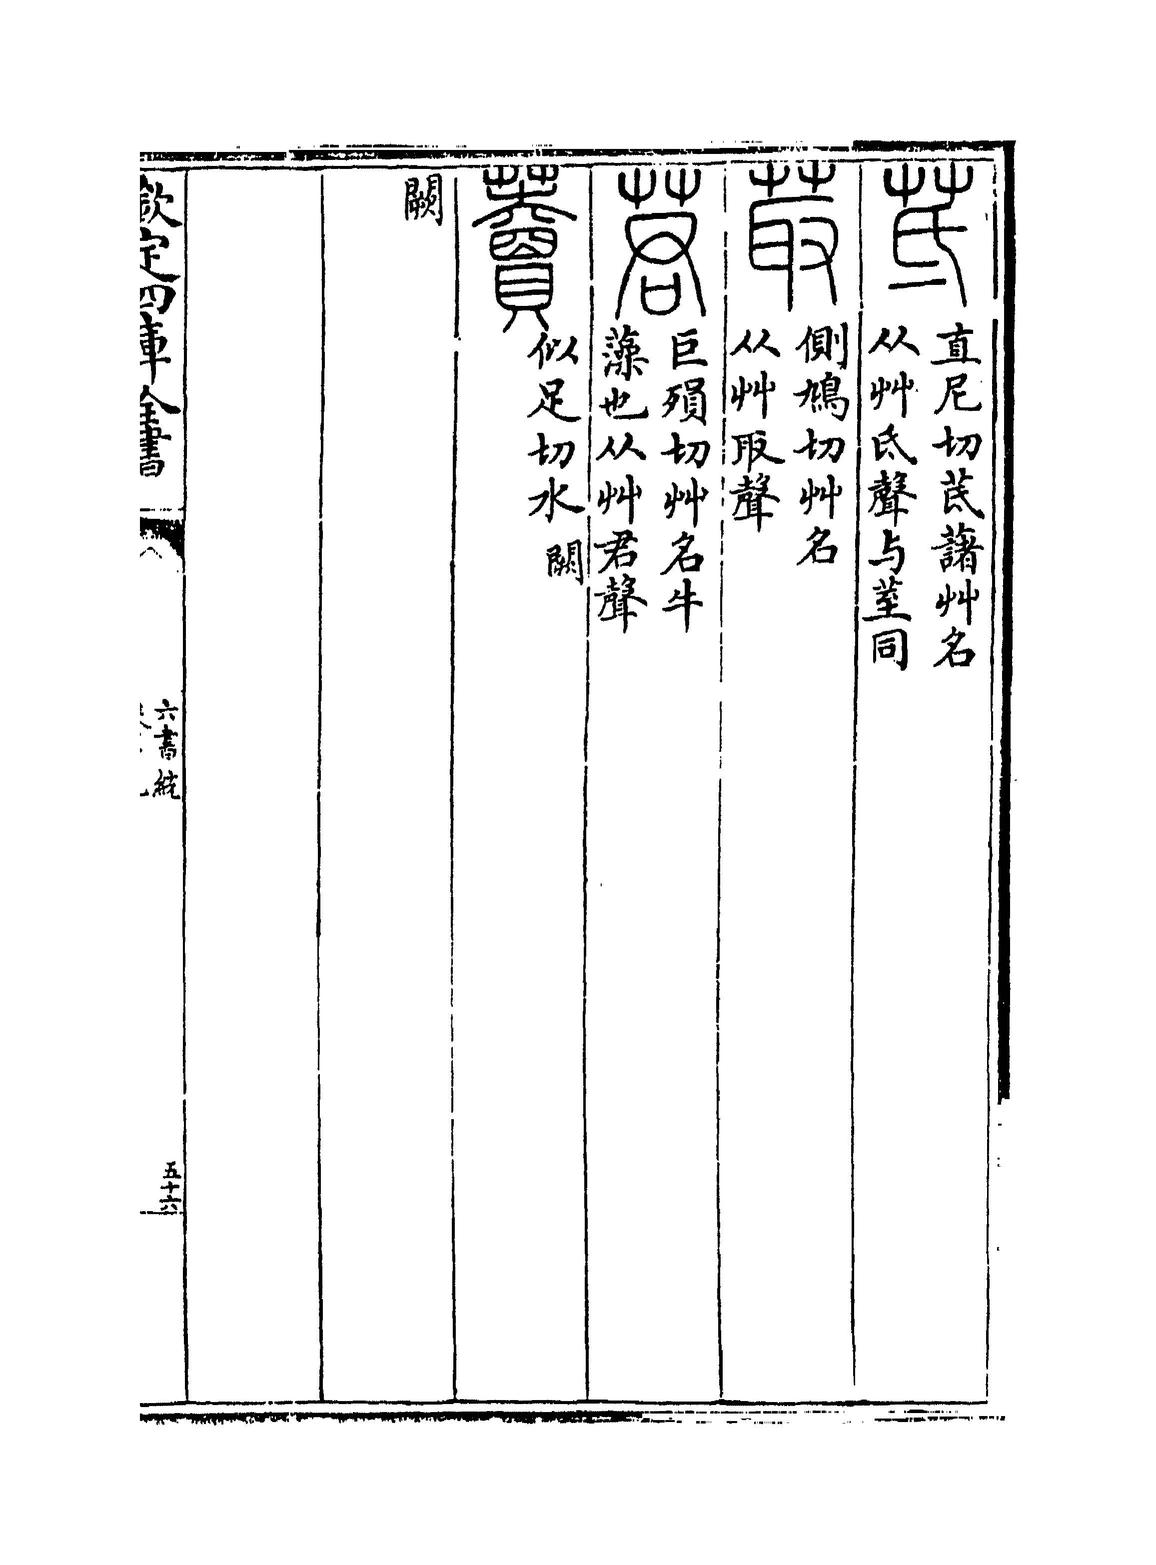 茋
直尼切茋藷艸名
从艸氐聲与荎同
菆
側鳩切艸名
从艸取聲
莙
巨殞切艸名牛
藻也从艸君聲
藚
似足切水 闕
闕
欽定四庫全書
六書統
五十六